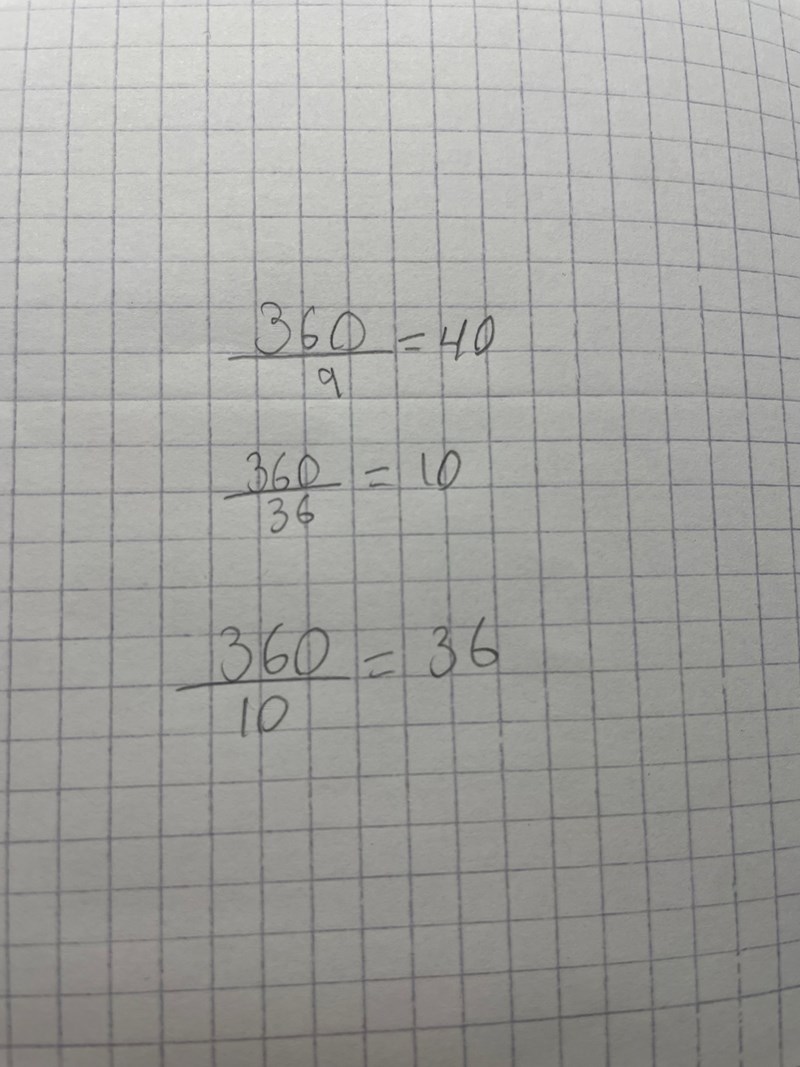 360/9 = 40
360/36 = 10
360/10 = 36